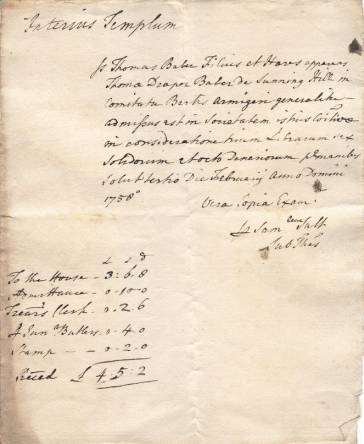 Interius Templum
Ss Thomas Baber Filius et Hæres apparens
Thomæ Draper Baber de Sunning Hill in
Comitatu Berks Armigeri generaliter
admissus est in Societatem istius
in consideratione trium Librarum sex
Solidorum et octo Denariorum p manibus
solut tertio Die Februarij Anno Domini
1758°
Vera Copia Exam
Saml Salt
Sub Thes
£ s d
To the House - 3:6.8
Admittance - 0.10.0
Clerk - 0.2.6
Butlers - 0.4.0
Stamp - - 0.2.0
Reced £ 4.5.2